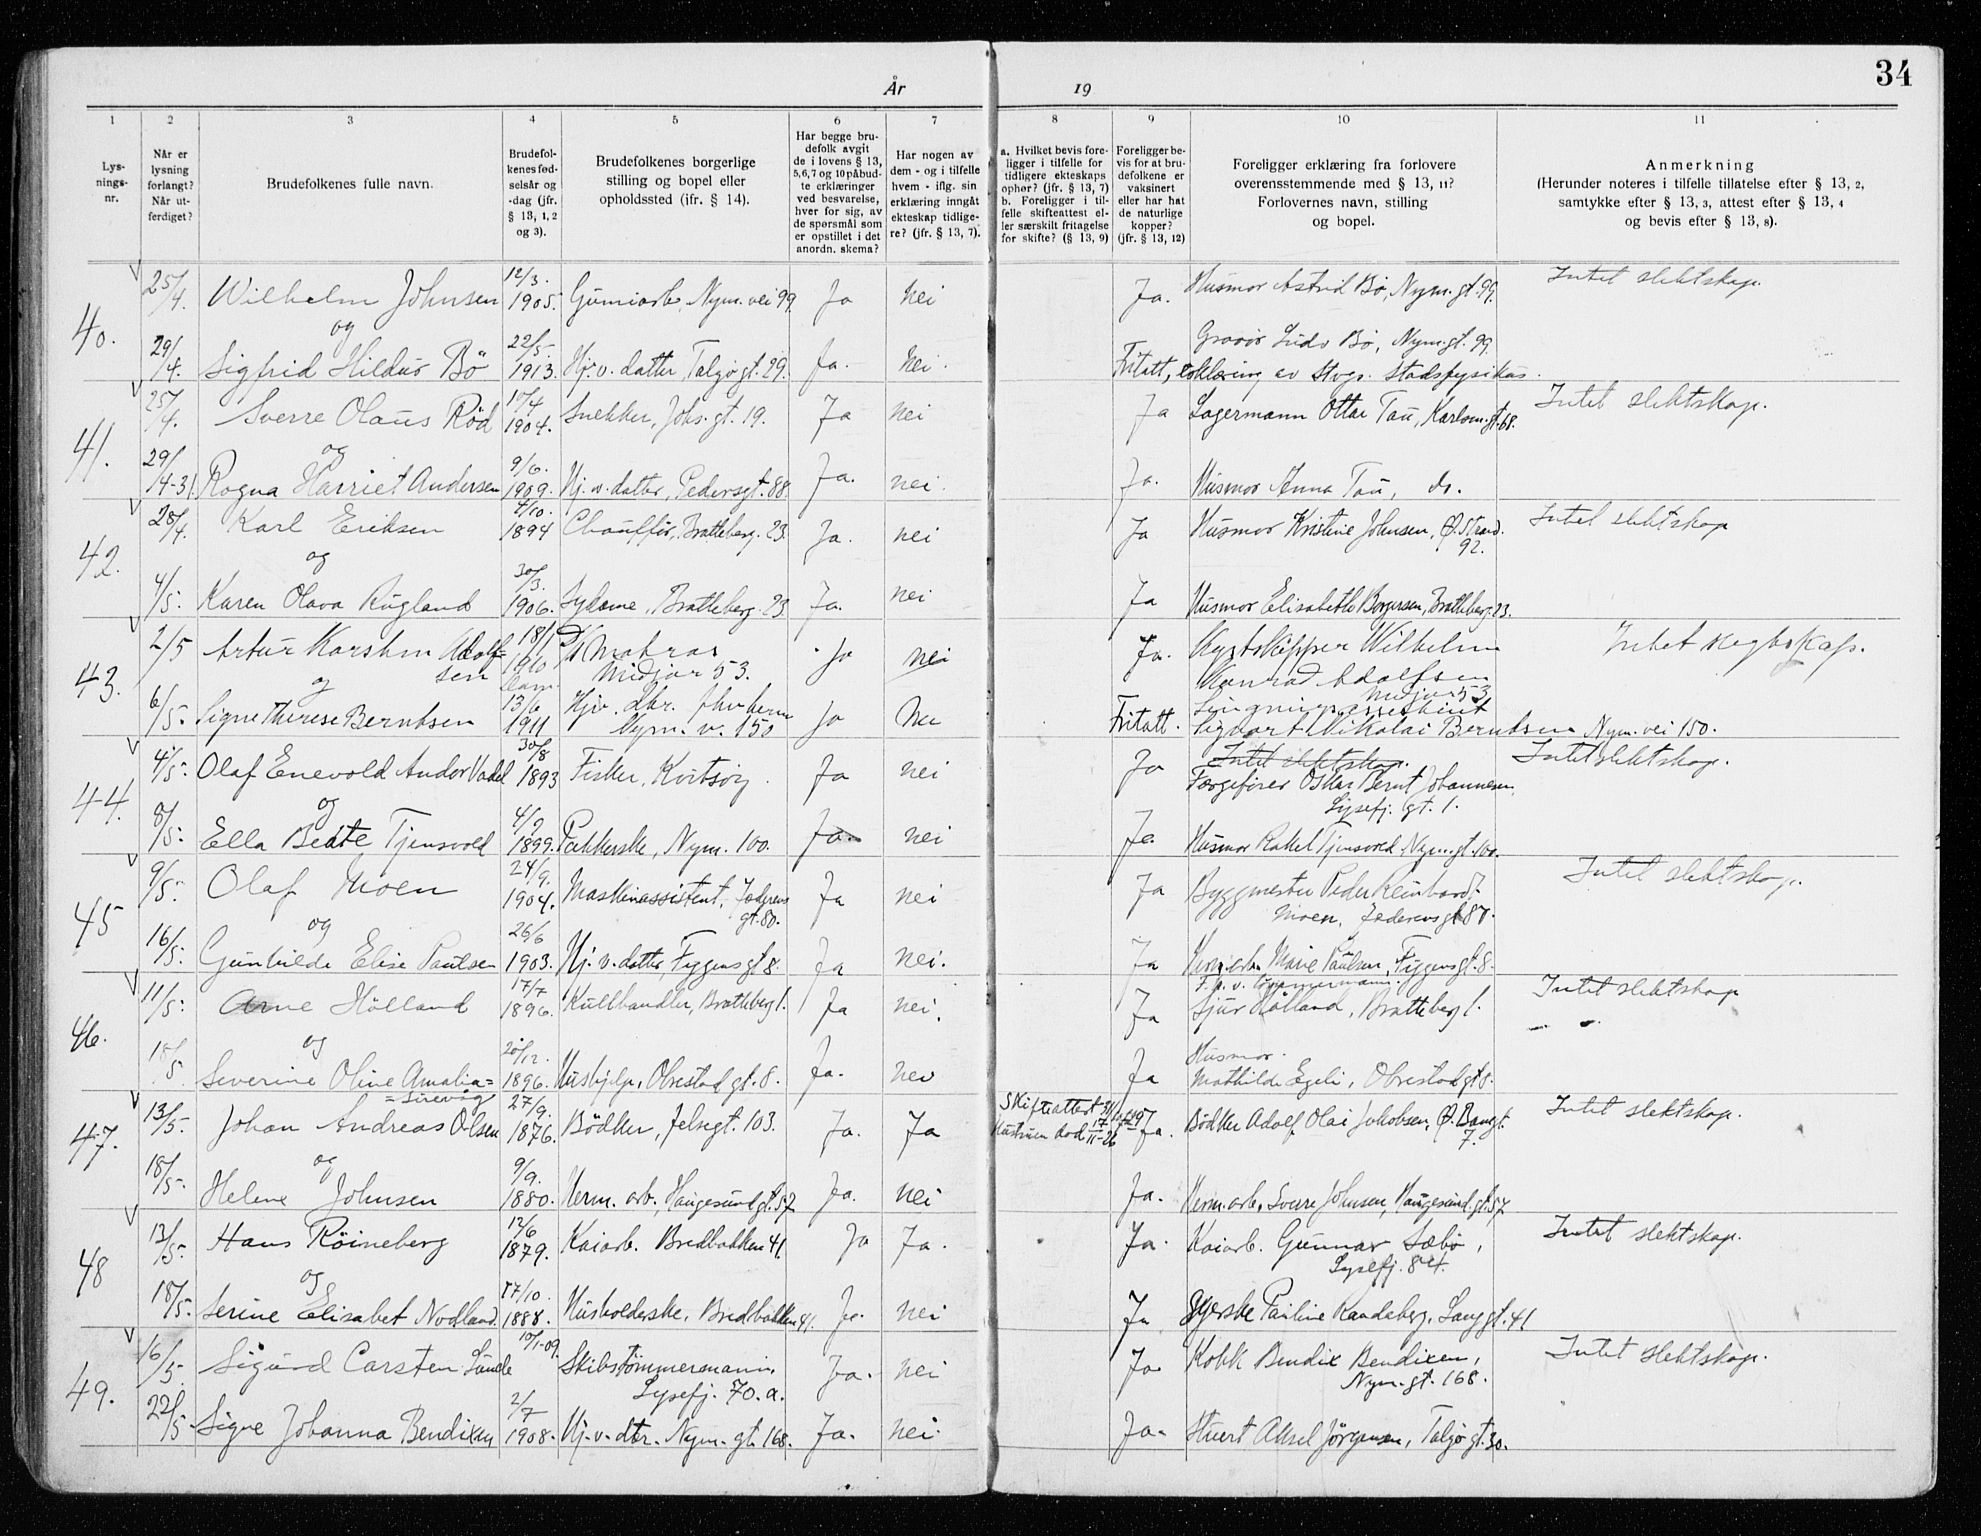 34
År 19
1 2 3 4 5 6 7 8 9 10 11
Lys-
nings-
nr.
Når er
lysning
forlangt?
Når ut-
ferdiget?
Brudefolkenes fulle navn.
Brudefol-
kenes fød-
selsår og
-dag (jfr.
§ 13, 1, 2
og 3).
Brudefolkenes borgerlige
stilling og bopel eller
opholdssted (ifr. § 14).
Har begge bru-
defolk avgit
de i lovens § 13,
5,6,7 og 10 påbud-
te erklæringer
ved besvarelse,
hver for sig, av
de spørsmål som
er opstillet i det
anordn. skema?
Har nogen av
dem - og i tilfelle
hvem - iflg. sin
erklæring inngått
ekteskap tidlige-
re? (jfr. § 13, 7).
a. Hvilket bevis fore-
ligger i tilfelle for
tidligere ekteskaps
ophør? (jfr. § 13, 7)
b. Foreligger i til-
felle skifteattest el-
ler særskilt fritagelse
for skifte? (§ 13, 9)
Foreligger be-
vis for at bru-
defolkene er
vaksinert
eller har hat
de naturlige
kopper?
(jfr. § 13, 12)
Foreligger erklæring fra forlovere
overensstemmende med § 13, 11?
Forlovernes navn, stilling
og bopel.
Anmerkning
(Herunder noteres i tilfelle tillatelse efter § 13, 2,
samtykke efter § 13, 3, attest efter § 13, 4
og bevis efter § 13, 8).
40. 25/4. Wilhelm Johnsen 12/3. 1905. Gumiarb. Nym. vei 99 Ja Nei Ja. Husmor Astrid Bö, Nym. gt. 99. Intet slektskap.
og
29/4. Sigfrid Hildur Bö 22/5. 1913. Hj. v. datter, Talgø gt. 29. Ja. Nei. Gravör Ludv Bö, Nym. gt. 99.
Fritatt, erklæring av Stvgr. Stadsfysikus.
41. 25/4. Sverre Olaus Röd 10/4 1904. Snekker, Johs. gt. 19. Ja nei Ja Lagermann Ottar Tau, Karlsm. gt. 68. Intet slektskap.
og
29/4-31 Ragna Harriet Andersen 9/6. 1909. Hj. v. datter, Pedersgt. 88. Ja. nei. Ja. Husmor Anna Tau, do.
42. 28/4. Karl Eriksen 4/10. 1894 Chaufför, Bratteberg. 23. Ja. nei Ja Husmor Kristine Johnsen, Ø. Strand.
92. Intet slektskap
og
4/5. Karen Olava Rugland 30/3. 1906. Sydame, Bratteberg. 23 Ja. nei Ja Husmor Elisabeth Borgersen, Bratteberg. 23.
43. 2/5 Artur Karsten Adolf=
sen 18/1 1910 Matros
Midjar 53. Ja nei Ja. Kystskipper Wilhelm
Konrad Adolfsen
Midjar 53 Intet slegtskap.
og
6/5. Signe Therese Berntsen 13/6 1911 Hjv. dtr.
Nym. v. 150 Ja Nei Fritatt.
Sigvart Nikolai Berntsen Nym. vei 150.
44. 4/5. Olaf Enevold Andor Vadel 30/8 1893 Fisker, Kvitsøy. Ja nei Ja Intet slektskap.
Færgefører Oskar Bernt Johannesen,
Lysefj. gt. 1. Intet slektskap.
og
8/5. Ella Beate Tjensvold 4/9 1899. Pakkerske, Nym. 100. Ja. nei Ja. Husmor Rakel Tjensvold Nym. gt. 100.
45 9/5. Olaf Moen 24/9. 1904. Maskinassistent, Jæderens
gt. 80. Ja nei Ja Byggmester Peder Reinhard
Moen, Jæderensgt 87. Intet slektskap.
og
16/5. Gunhilde Elise Paulsen 26/6 1903. Hj. v. datter, Tyggensgt 8. Ja nei. Ja Herm. arb. Marie Paulsen, Tyggensgt. 8.
46. 11/5. Arne Hölland 17/7 1896. Kullhandler, Bratteberg 1. Ja nei. Ja F. h. v. tömmermann.
Sjur Hølland, Bratteberg 1. Intet slektskap
og
18/5. Severine Oline Amalia=
=Sirevåg 20/12. 1896. Hushjelp, Obrestad gt. 8. Ja. nei Ja Husmor.
Mathilde Egeli, Obrestad gt 8.
47. 13/5. Johan Andreas Olsen 27/9. 1876. Bödker, Jelsegt. 103. Ja. Ja Skifteattest
Hustruen död 17/11-26 Ja. Bödker Adolf Olai Jakobsen, Ø. Bangt.
7. Intet slektskap.
og
18/5. Helene Johnsen 9/9. 1880. Herm. arb., Haugesund gt. 57 Ja. nei Ja. Herm. arb. Sverre Johnsen, Haugesund. gt. 57
48 13/5. Hans Röineberg 12/6 1879. Kaiarb. Bredbakken 41. Ja Ja. Ja. Kaiarb. Gunnar Sæbö,
Lysefj. 84. Intet slektskap.
og
18/5. Serine Elisabet Nodland. 17/10. 1888. Husholderske, Bredbakken 41. Ja. nei Ja Syerske Pauline Randeberg, Langgt. 41
49. 16/5. Sigurd Carsten Lunde 10/1-09. Skibstömmermann,
Lysefj. 70. a. Ja. nei Ja Kokk Bendix Bendixen,
Nym. gt. 168. Intet slektskap.
22/5. Signe Johanna Bendixen 2/7 1908. Hj. v. dtr. Nym. gt. 168. Ja. nei Ja. Stuert Aksel Jörgensen, Talgø gt. 30.